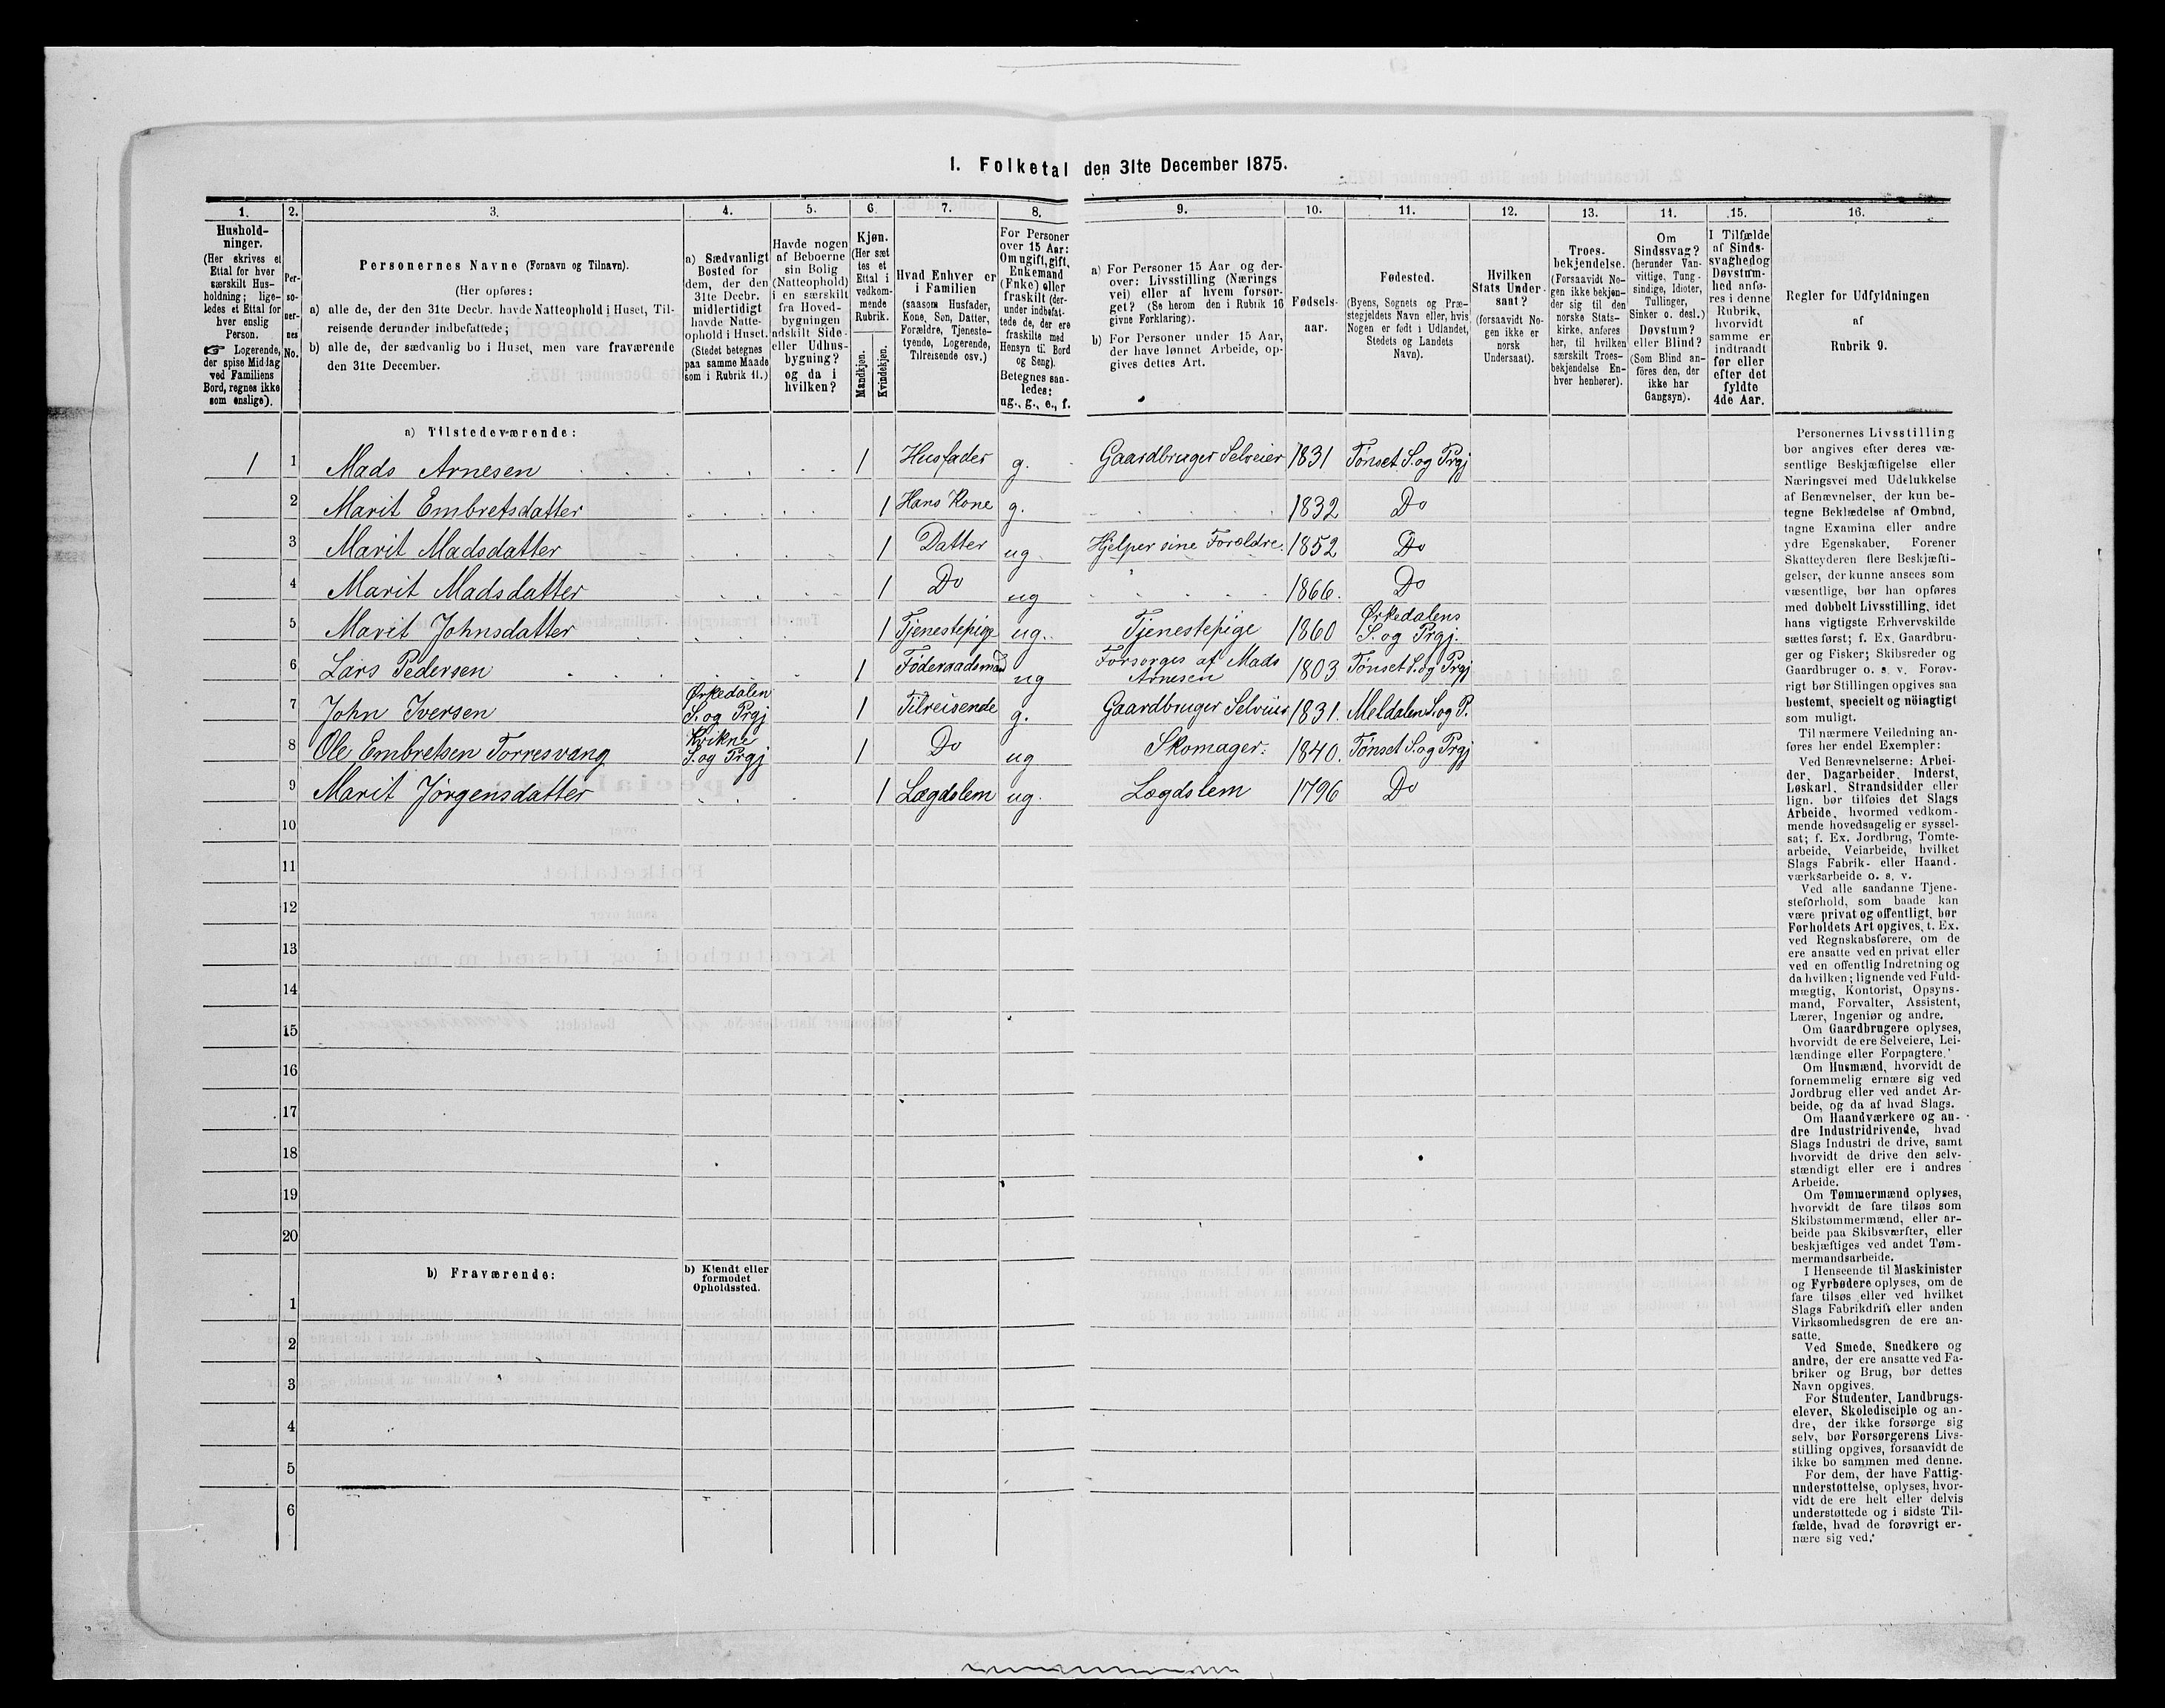 1. Folketal den 31te December 1875.
1. 2. 3. 4. 5. 6. 7. 8. 9. 10. 11. 12. 13. 14. 15. 16.
Hushold-
ninger.
(Her skrives et
Ettal for hver
særskilt Hus-
holdning; lige-
ledes et Ettal for
hver enslig
Person.
☞ Logerende,
der spise Middag
ved Familiens
Bord, regnes ikke
som enslige).
Per-
so-
ner-
nes
No.
Personernes Navne (Fornavn og Tilnavn).
(Her opføres:
a) alle de, der den 31te Decbr. havde Natteophold i Huset, Til-
reisende derunder indbefattede;
b) alle de, der sædvanlig bo i Huset, men vare fraværende
den 31te December.
a) Sædvanligt
Bosted for
dem, der den
31te Decbr.
midlertidigt
havde Natte-
ophold i Huset.
(Stedet betegnes
paa samme Maade
som i Rubrik 11.)
Havde nogen
af Beboerne
sin Bolig
(Natteophold)
i en særskilt
fra Hoved-
bygningen
adskilt Side-
eller Udhus-
bygning?
og da i
hvilken?
Kjøn.
(Her sæt
tes et
Ettal i
vedkom-
mende
Rubrik.
Mandkjøn.
Kvindekjøn.
Hvad Enhver er
i Familien
(saasom Husfader,
Kone, Søn, Datter,
Forældre, Tjeneste-
tyende, Logerende,
Tilreisende osv.)
For Personer
over 15 Aar:
Om ugift, gift,
Enkemand
(Enke) eller
fraskilt (der-
under indbefat-
tede de, der ere
fraskilte med
Hensyn til Bord
og Seng).
Betegnes saa-
ledes:
ug., g., e., f.
a) For Personer 15 Aar og der-
over: Livsstilling (Nærings
vei) eller af hvem forsør-
get? (Se herom den i Rubrik 16
givne Forklaring).
b) For Personer under 15 Aar,
der have lønnet Arbeide, op-
gives dettes Art.
Fødsels-
aar.
Fødested.
(Byens, Sognets og Præ-
stegjeldets Navn eller, hvis
Nogen er født i Udlandet,
Stedets og Landets
Navn).
Hvilken
Stats Under-
saat?
(forsaavidt No-
gen ikke er
norsk
Undersaat).
Troes-
bekjendelse.
(Forsaavidt No-
gen ikke bekjen-
der sig til den
norske Stats-
kirke, anføres
her, til hvilken
særskilt Troes-
bekjendelse En-
hver henhører).
Om
Sindssvag?
(herunder Van-
vittige, Tung-
sindige, Idioter,
Tullinger,
Sinker o. desl.)
Døvstum?
eller Blind?
(Som Blind an-
føres den, der
ikke har
Gangsyn).
I Tilfælde
af Sinds-
svaghed og
Døvstum-
hed anfø-
res i denne
Rubrik,
hvorvidt
samme er
indtraadt
før eller
efter det
fyldte
4de Aar.
Regler for Udfyldningen
af
Rubrik 9.
a) Tilstedeværende:
1 1 Mads Arnesen 1 Husfader g. Gaardbruger Selveier 1831 Tønset S. og Prgj
2 Marit Embretsdatter 1 Hans Kone g. 1832 Do
3 Marit Madsdatter 1 Datter ug Hjelper sine Forældre. 1852 Do
4 Marit Madsdatter 1 Do ug 1866. Do
5 Marit Johnsdatter 1 Tjenestepige ug. Tjenestepige 1860 Ørkedalens
S. og Prgj.
6 Lars Pedersen 1 Føderaadsmand ug Forsørges af Mads
Arnesen 1803 Tønset S. og Prgj
7 John Iversen Ørkedalen
S. og Prgj 1 Tilreisende g. Gaardbruger Selveier 1831. Meldalen S. og P.
8 Ole Embretsen Torresvang Kvikne
S. og Prgj 1 Do ug Skomager. 1840. Tønset S. og Prgj
9 Marit Jørgensdatter 1 Lægdslem ug. Lægdslem 1796 Do
10
11
12
13
14
15
16
17
18
19
20
b) Fraværende:
b) Kjendt eller
formodet
Opholdssted.
1
2
3
4
5
6
Personernes Livsstilling
bør angives efter deres væ-
sentlige Beskjæftigelse eller
Næringsvei med Udelukkelse
af Benævnelser, der kun be-
tegne Beklædelse af Ombud,
tagne Examina eller andre
ydre Egenskaber. Forener
Skatteyderen flere Beskjæfti-
gelser, der kunne ansees som
væsentlige, bør han opføres
med dobbelt Livsstilling, idet
hans vigtigste Erhvervskilde
sættes først; f. Ex. Gaardbru-
ger og Fisker; Skibsreder og
Gaardbruger o. s. v. Forøv-
rigt bør Stillingen opgives saa
bestemt, specielt og nöiagtigt
som muligt.
Til nærmere Veiledning an-
føres her endel Exempler:
Ved Benævnelserne: Arbei-
der, Dagarbeider, Inderst,
Løskarl, Strandsidder eller
lign. bør tilføies det Slags
Arbeide, hvormed vedkom-
mende hovedsagelig er syssel-
sat; f. Ex. Jordbrug, Tomte-
arbeide, Veiarbeide, hvilket
Slags Fabrik- eller Haand-
værksarbeide o. s. v.
Ved alle saadanne Tjene-
steforhold, som baade kan
være privat og offentligt, bør
Forholdets Art opgives, f. Ex.
ved Regnskabsførere, om de
ere ansatte ved en privat eller
ved en offentlig Indretning og
da hvilken; lignende ved Fuld-
mægtig, Kontorist, Opsyns-
mand, Forvalter, Assistent,
Lærer, Ingeniør og andre.
Om Gaardbrugere oplyses,
hvorvidt de ere Selveiere, Lei-
lændinge eller Forpagtere.
Om Husmænd, hvorvidt de
fornemmelig ernære sig ved
Jordbrug eller ved andet Ar-
beide, og da af hvad Slags.
Om Haandværkere og an-
dre Industridrivende, hvad
Slags Industri de drive, samt
hvorvidt de drive den selv-
stændigt eller ere i andres
Arbeide.
Om Tømmermænd oplyses,
hvorvidt de fare tilsøs som
Skibstømmermænd, eller ar-
beide paa Skibsværfter, eller
beskjæftiges ved andet Tøm-
mermandsarbeide.
I Henseende til Maskinister
og Fyrbødere oplyses, om de
fare tilsøs eller ved hvilket
Slags Fabrikdrift eller anden
Virksomhedsgren de ere an-
satte.
Ved Smede, Snedkere og
andre, der ere ansatte ved Fa-
briker og Brug, bør dettes
Navn opgives.
For Studenter, Landbrugs-
elever, Skoledisciple og an-
dre, der ikke forsørge sig
selv, bør Forsørgerens Livs-
stilling opgives, forsaavidt de
ikke bo sammen med denne.
For dem, der have Fattig-
understøttelse, oplyses, hvor-
vidt de ere helt eller delvis
understøttede og i sidste Til-
fælde, hvad de forøvrigt er-
nære sig ved.